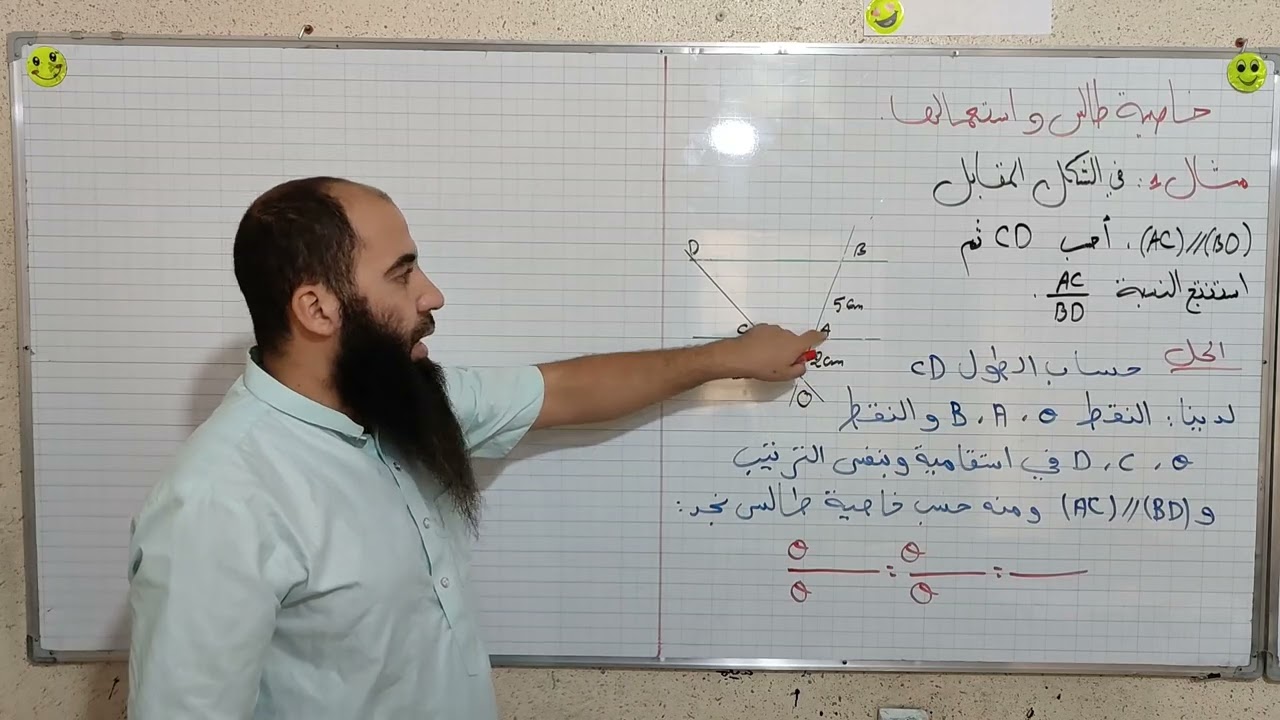 خاصية طالس و استعمالها.
مثال 1: في الشكل المقابل
(AC)//(BD)، أحسب CD ثم
استنتج النسبة AC/BD.
الحل
حساب الطول CD
لدينا: النقط O، A، B و النقط
O، C، D في استقامية وبنفس الترتيب
و (AC)//(BD) ومنه حسب خاصية طالس نجد:
O/O = O/O = —
D
B
5cm
C
A
2cm
O